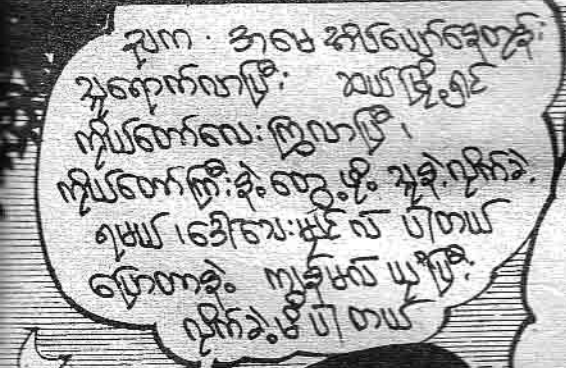 ညက . အမေ အိပ်ပျော်နေတုန်း
သူရောက်လာပြီး ဆယ်မြို့ရှင်
ကိုယ်တော်လေး ကြွလာပြီ၊
ကိုယ်တော်ကြီးနဲ့ တွေ့ဖို့ သူနဲ့လိုက်ခဲ့
ရမယ်၊ ဒေါ်လေး မှင် လဲ ပါတယ်
ပြောတာနဲ့ ကျွန်မလဲ ယုံပြီး
လိုက်ခဲ့မိပါတယ်